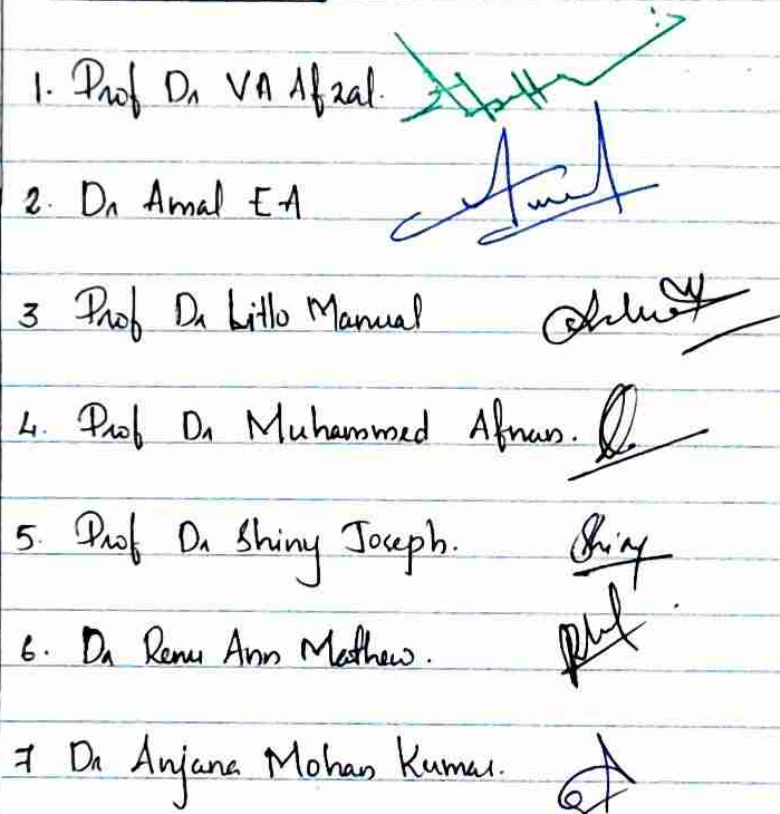 1. Prof Dr VA Afzal.
2. Dr Amal EA
3 Prof Dr Litto Manual
4. Prof Dr Muhammed Afnan.
5. Prof Dr Shiny Joseph. Shiny
6. Dr Renu Ann Mathew.
7 Dr Anjana Mohan Kumar.